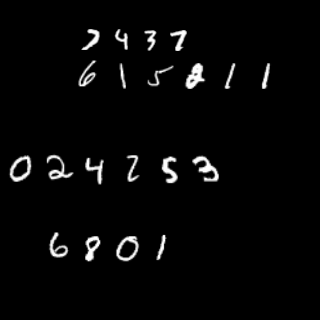 7437
615211
024753
6801